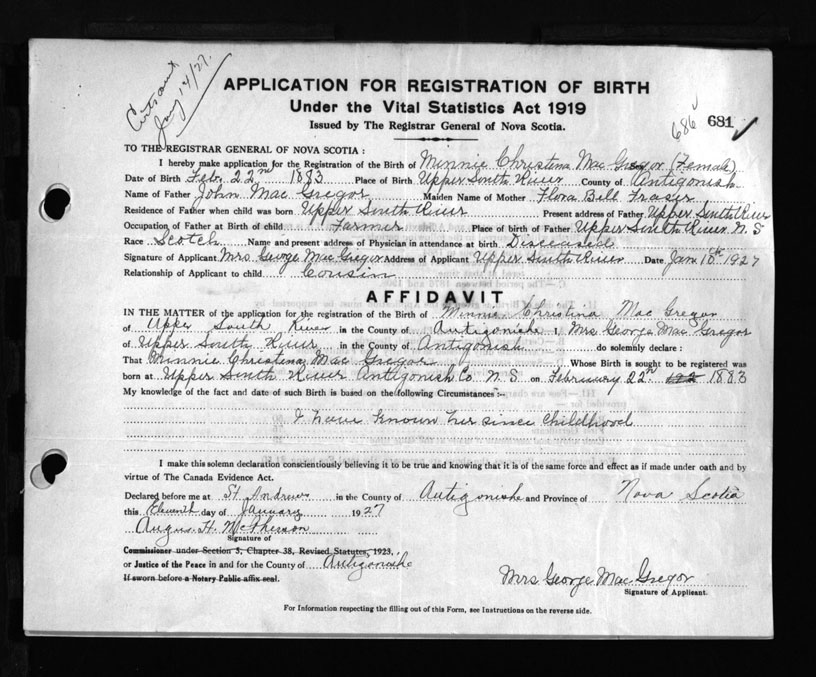 Jany 14/27.
APPLICATION FOR REGISTRATION OF BIRTH
Under the Vital Statistics Act 1919
Issued by The Registrar General of Nova Scotia.
686 681
TO THE REGISTRAR GENERAL OF NOVA SCOTIA:
I hereby make application for the Registration of the Birth of Minnie Christina Mac Gregor (Female)
Date of Birth Feb. 22nd 1883 Place of Birth Upper South River County of Antigonish
Name of Father John Mac Gregor Maiden Name of Mother Flora Bell Fraser
Residence of Father when child was born Upper South River Present address of Father Upper South River
Occupation of Father at Birth of child Farmer Place of birth of Father Upper South River N.S
Race Scotch Name and present address of Physician in attendance at birth Diseased
Signature of Applicant Mrs. George Mac Gregor Address of Applicant Upper South River Date Jan 10th 1927
Relationship of Applicant to child Cousin
AFFIDAVIT
IN THE MATTER of the application for the registration of the Birth of Minnie Christina Mac Gregor
of Upper South River in the County of Antigonishe I, Mrs George Mac Gregor
of Upper South River in the County of Antigonish do solemnly declare:
That Minnie Christina Mac Gregor Whose Birth is sought to be registered was
born at Upper South River Antigonish Co. N.S. on February 22n 192 1883
My knowledge of the fact and date of such Birth is based on the following Circumstances:-
I have known her since Childhood
I make this solemn declaration conscientiously believing it to be true and knowing that it is of the same force and effect as if made under oath and by
virtue of The Canada Evidence Act.
Declared before me at St. Andrews in the County of Antigonishe and Province of Nova Scotia
this Eleventh day of January 1927
Angus H. McPherson
Signature of
Commissioner under Section 5, Chapter 38, Revised Statutes, 1923,
or Justice of the Peace in and for the County of Antigonishe
If sworn before a Notary Public affix seal.
Mrs George Mac Gregor
Signature of Applicant.
For Information respecting the filling out of this Form, see Instructions on the reverse side.